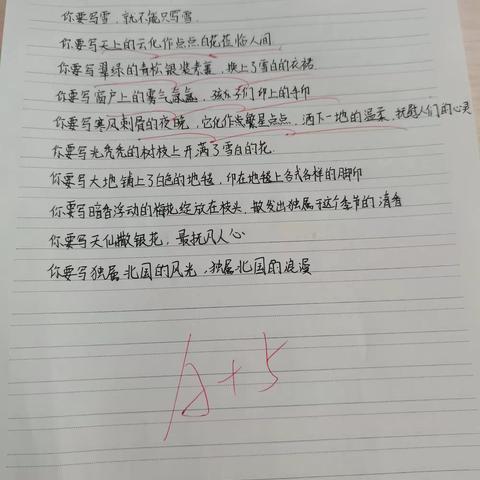 你要写雪，就不能只写雪.
你要写天上的云化作点点白花莅临人间
你要写翠绿的青松银装素裹，换上了雪白的衣裙
你要写窗户上的雾气氤氲，孩子们印上的手印
你要写寒风刺骨的夜晚，它化作灰繁星点点，洒下一地的温柔，抚慰人们的心灵
你要写光秃秃的树枝上开满了雪白的花.
你要写大地铺上了白色的地毯，印在地毯上各式各样的脚印
你要写暗香浮动的梅花绽放在枝头，散发出独属于这个季节的清香
你要写天仙撒银花，最抚凡人心
你要写独属北国的风光，独属北国的浪漫
A+5